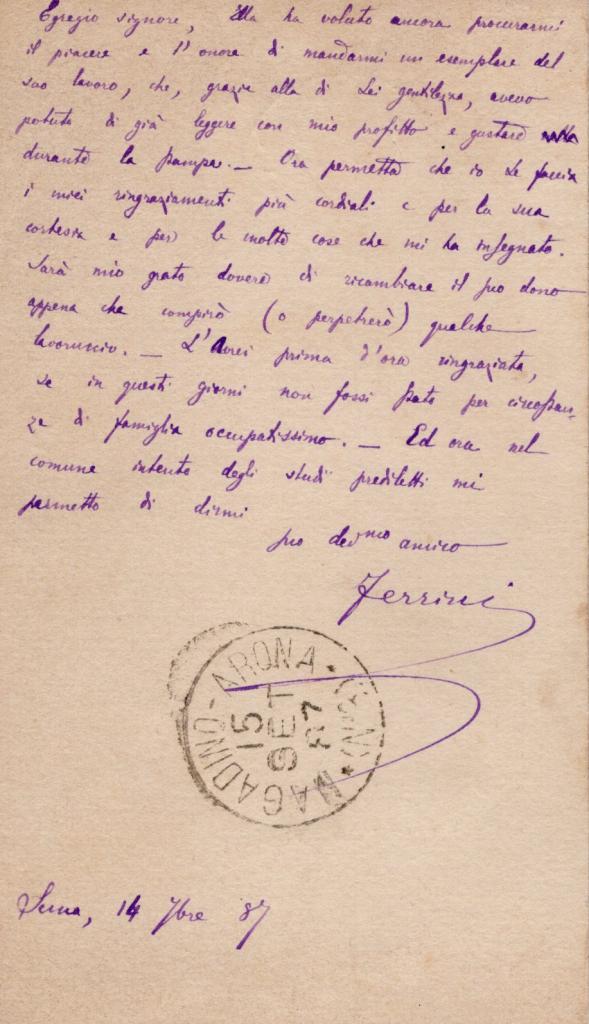 Egregio signore, Ella ha voluto ancora procurarmi
il piacere e l'onore di mandarmi un esemplare del
suo lavoro, che, grazie alla di Lei gentilezza, avevo
potuto di già leggere con mio profitto e gustare
durante la stampa. — Ora permetta che io Le faccia
i miei ringraziamenti più cordiali e per la sua
cortesia e per le molte cose che mi ha insegnato.
Sarà mio grato dovere di ricambiare il suo dono
appena che compirò (o perpetrerò) qualche
lavoruccio. — L'avrei prima d'ora ringraziata,
se in questi giorni non fossi stato per circostan-
ze di famiglia occupatissimo. — Ed ora nel
comune intento degli studi prediletti mi
permetto di dirmi
suo dev.mo amico
Ferrini
MAGADINO-ARONA
15
SET
87
Suna, 14 7bre 87